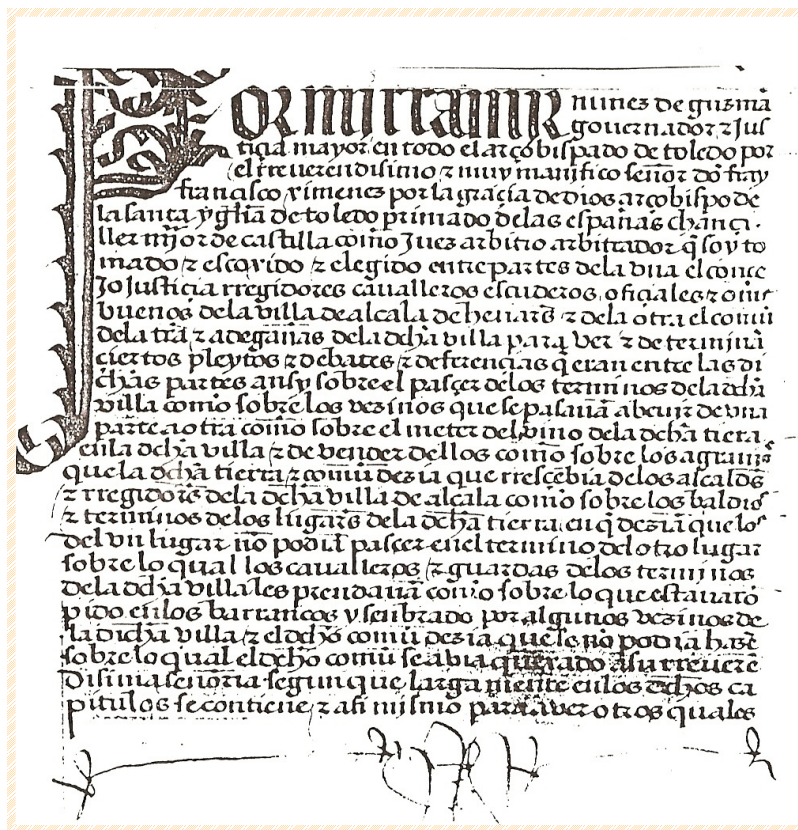 Por mi rramir nunez de guzmā
gouernador ⁊ Jus
ticia mayor en todo el arçobispado de toledo por
el rreuerendisimo ⁊ muy manifico señor dō fray
francisco ximenez por la gracia de dios arçobispo de
la santa ygłia de toledo primado delas españas chanci
ller mjor de castilla com̄o Juez arbitro arbitrador q̄ soy to
mado ⁊ escoxido ⁊ elegido entre partes dela vna el conce
Jo Justicia rregidores caualleros escuderos oficiales ⁊ om̄s
buenos dela villa de alcala de henar̄s ⁊ dela otra el comū
dela tr̄ra ⁊ adegañas dela dch̄a villa para ver ⁊ determinā
ciertos pleytos ⁊ debates ⁊ deferencias q̄ eran entre las di
chas partes ansy sobre el pasçer delos terminos dela dch̄a
villa com̄o sobre los vezinos que se pasauā a beuir de vna
parte a otra com̄o sobre el meter del vino dela dch̄a tierra
en la dch̄a villa ⁊ de vender dellos com̄o sobre los agrauios
que la dch̄a tierra ⁊ comū dezia que rresçebia delos alcaldes
⁊ rregidor̄s dela dch̄a villa de alcala com̄o sobre los baldios
⁊ terminos delos lugar̄s dela dch̄a tierra en q̄ deziā que los
del vn lugar nō podiā pasçer en el termino del otro lugar
sobre lo qual los caualleros ⁊ guardas delos terminos
dela dch̄a villa les prendauā com̄o sobre lo que estaua rō
pido en los barrancos y senbrado por algunos vezinos de
la dich̄a villa ⁊ el dch̄o comū dezia que lo nō podia hazē
sobre lo qual el dch̄o comū se abia quexado a su rreuerē
disima señoria segun que larga mente en los dch̄os ca
pitulos se contiene ⁊ asi mismo para ver otros quales